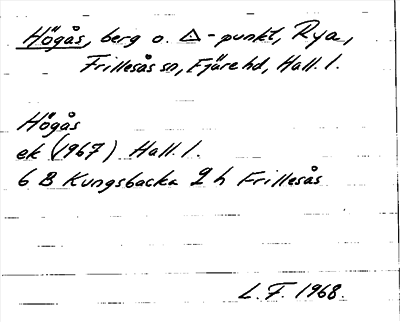 Högås, berg o. △-punkt, Rya,
Frillesås sn, Fjäre hd, Hall. l.
Högås
ek (1967) Hall. l.
6 B Kungsbacka 2 h Frillesås
L. F. 1968.